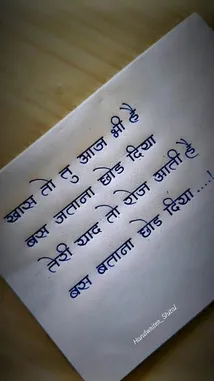 खास तो तु आज भी है
बस जताना छोड दिया
तेरी याद तो रोज आती है
बस बताना छोड दिया ....!